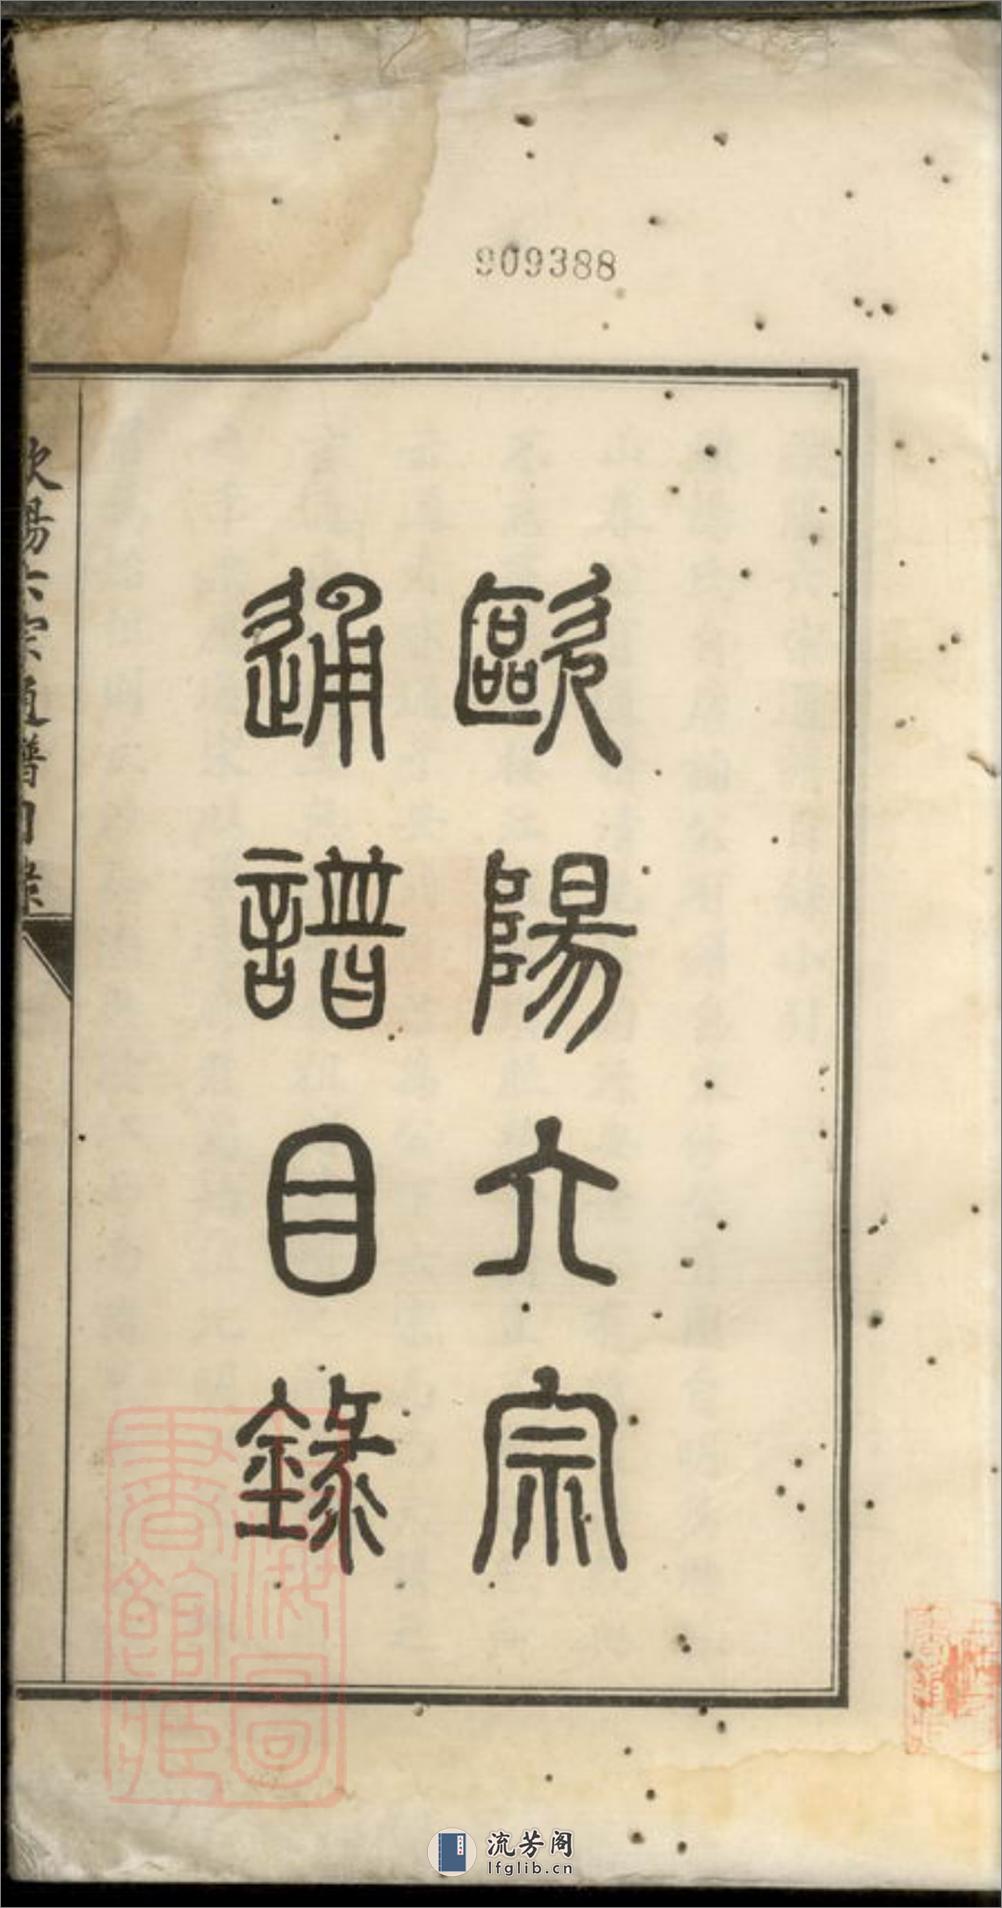 909388
歐陽六宗
通譜目錄
歐陽六宗通譜目錄
上海圖書館藏
流芳阁
lfglib.cn